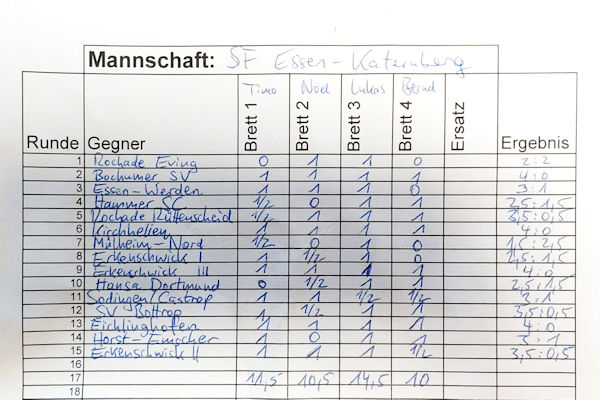 Mannschaft: SF Essen-Katernberg
Timo Noel Lukas Bernd
Runde Gegner Brett 1 Brett 2 Brett 3 Brett 4 Ersatz Ergebnis
1 Rochade Eving 0 1 1 0 2:2
2 Bochumer SV 1 1 1 1 4:0
3 Essen-Werden 1 1 1 0 3:1
4 Hammer SC 1/2 0 1 1 2,5:1,5
5 Rochade Rüttenscheid 1/2 1 1 1 3,5:0,5
6 Kirchhellen 1 1 1 1 4:0
7 Mülheim-Nord 1/2 0 1 0 1,5:2,5
8 Erkenschwick I 1 1/2 1 0 2,5:1,5
9 Erkenschwick III 1 1 1 1 4:0
10 Hansa Dortmund 0 1/2 1 1 2,5:1,5
11 Sodingen/Castrop 1 1 1/2 1/2 3:1
12 SV Bottrop 1 1/2 1 1 3,5:0,5
13 Eichlinghofen 1 1 1 1 4:0
14 Horst-Emscher 1 0 1 1 3:1
15 Erkenschwick II 1 1 1 1/2 3,5:0,5
16
17 11,5 10,5 14,5 10
18